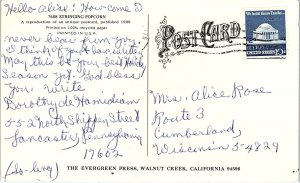 Hello Alise! How come I
7688 STRINGING POPCORN
A reproduction of an antique postcard, published 1990
Printed on 100% recycled paper
PRINTED IN U.S.A.
never hear from you.
I think of you & am waiting
May this be your best Holiday
Season yet. God bless
you. Write
Dorothy de Hamidian
552 North Shippen Street
Lancaster, Pennsylvania
17602
(So-long)
POST CARD
Mrs. Alice Rose
Route 3
Cumberland,
Wisconsin 54829
THE EVERGREEN PRESS, WALNUT CREEK, CALIFORNIA 94596